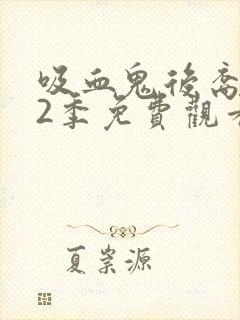 吸血鬼後裔
2季免費觀看
夏崇源